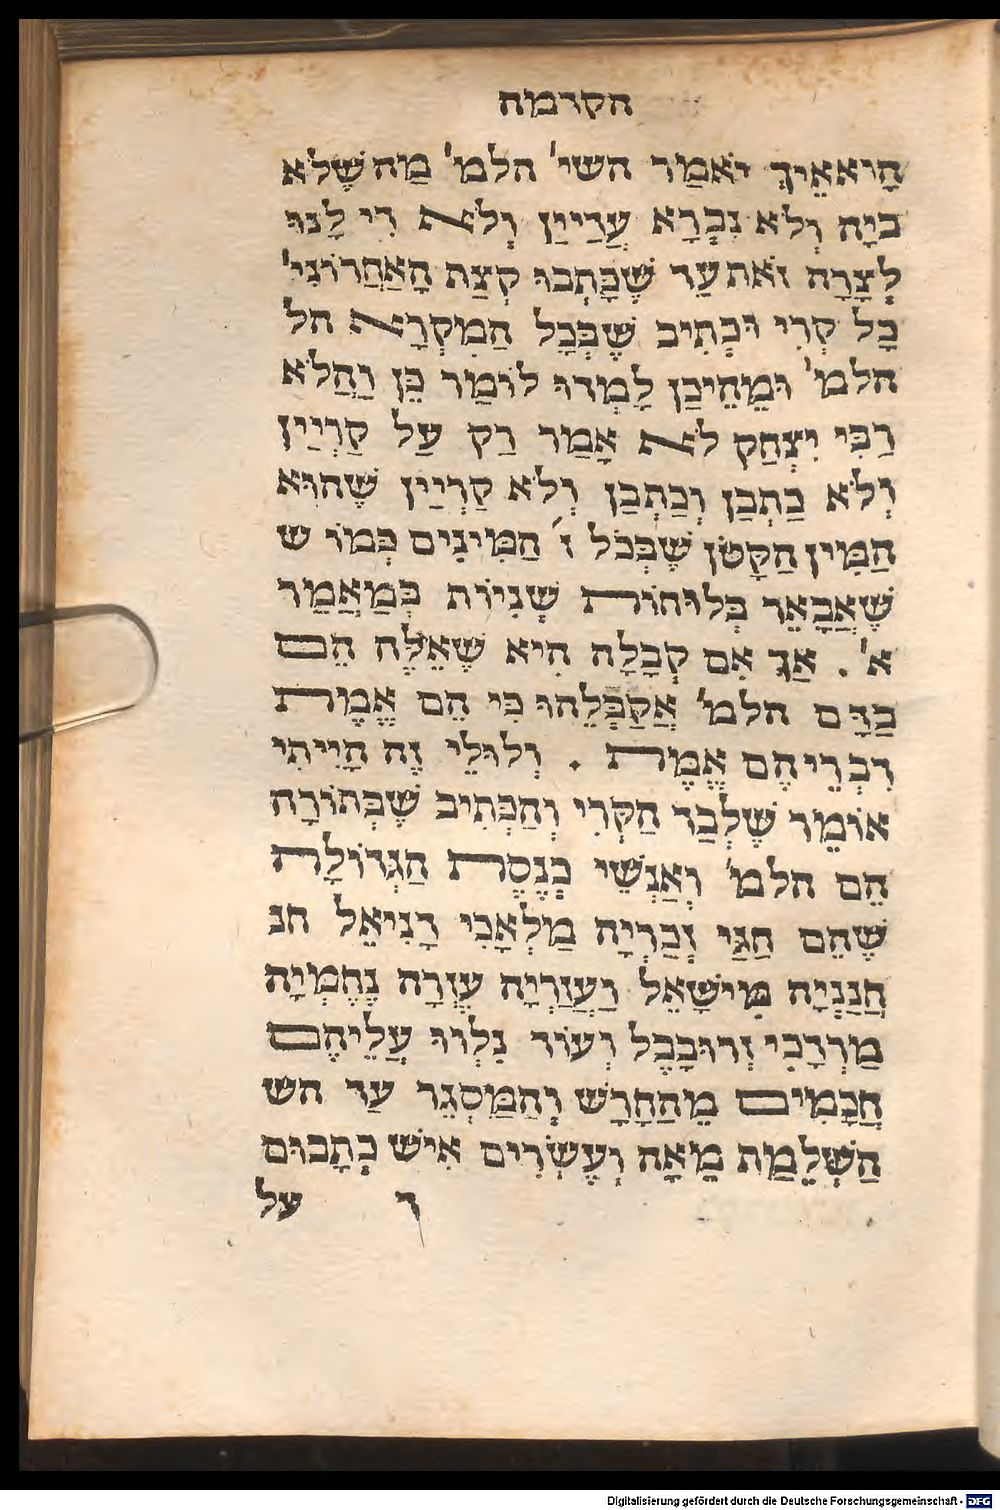 הקדמה
הָיא אֵיךְ יֹאמַר השי' הלמ' מַה שֶּׁלֹא
הָיָה וְלא נִבְרָא עֲדַיַן וְלא דִי לָנוּ
לְצָרָה זֹאת עַד שֶׁכָּתְבוּ קְצַת הָאַחֲרוֹנִי'
כָּל קְרִי וּכְתִיב שֶׁבְּכָל הַמִקְרָא הל
הלמ' וּמֵהֵיכַן לָמְדוּ לוֹמַר כֵּן וַהֲלֹא
רַבִּי יִצְחַק לֹא אָמַר רַק עַל קַרְיַין
וְלֹא כַתְבַן וְכַתְבַן וְלֹא קַרְיַין שֶׁהוּא
הַמִּין הַקָּטֹן שֶׁבְּכֹל ז' הַמִּינִים כְּמוֹ ש
שֶׁאֲבָאֵר בְּלוּחוֹת שְׁנִיוֹת בְּמַאֲמַר
א'. אַךְ אִם קַבָּלָה הִיא שֶׁאֵלֶּה הֵם
כַּהֵּם הלמ' אֲקַבְּלֵהוּ כִּי הֵם אֱמֶת
וְדִבְרֵיהֶם אֱמֶת . וְלוּלֵי זֶה הָיִיתִי
אוֹמֵר שֶׁלְּבַד הַקְּרִי וְהַכְּתִיב שֶׁבְּתוֹרָה
הֵם הלמ' וְאַנְשֵׁי כְנֶסֶת הַגְּדוֹלָה
שֶׁהֵם חַגַּי זְכַרְיָה מַלְאָכִי דָנִיאֵל חנ
חֲנַנְיָה מִישָׁאֵל וַעֲזַרְיָה עֶזְרָה נְחֶמְיָה
מַרְדְּכַי זְרוּבָבֶל וְעוֹד נִלְווּ עֲלֵיהֶם
חֲכָמִים מֵהַחָרָשׁ וְהַמַּסְגֵּר עַד הש
הַשְׁלָמַת מֵאָה וְעֶשְׂרִים אִישׁ כְּתָבוּם
ד על
Digitalisierung gefördert durch die Deutsche Forschungsgemeinschaft - DFG